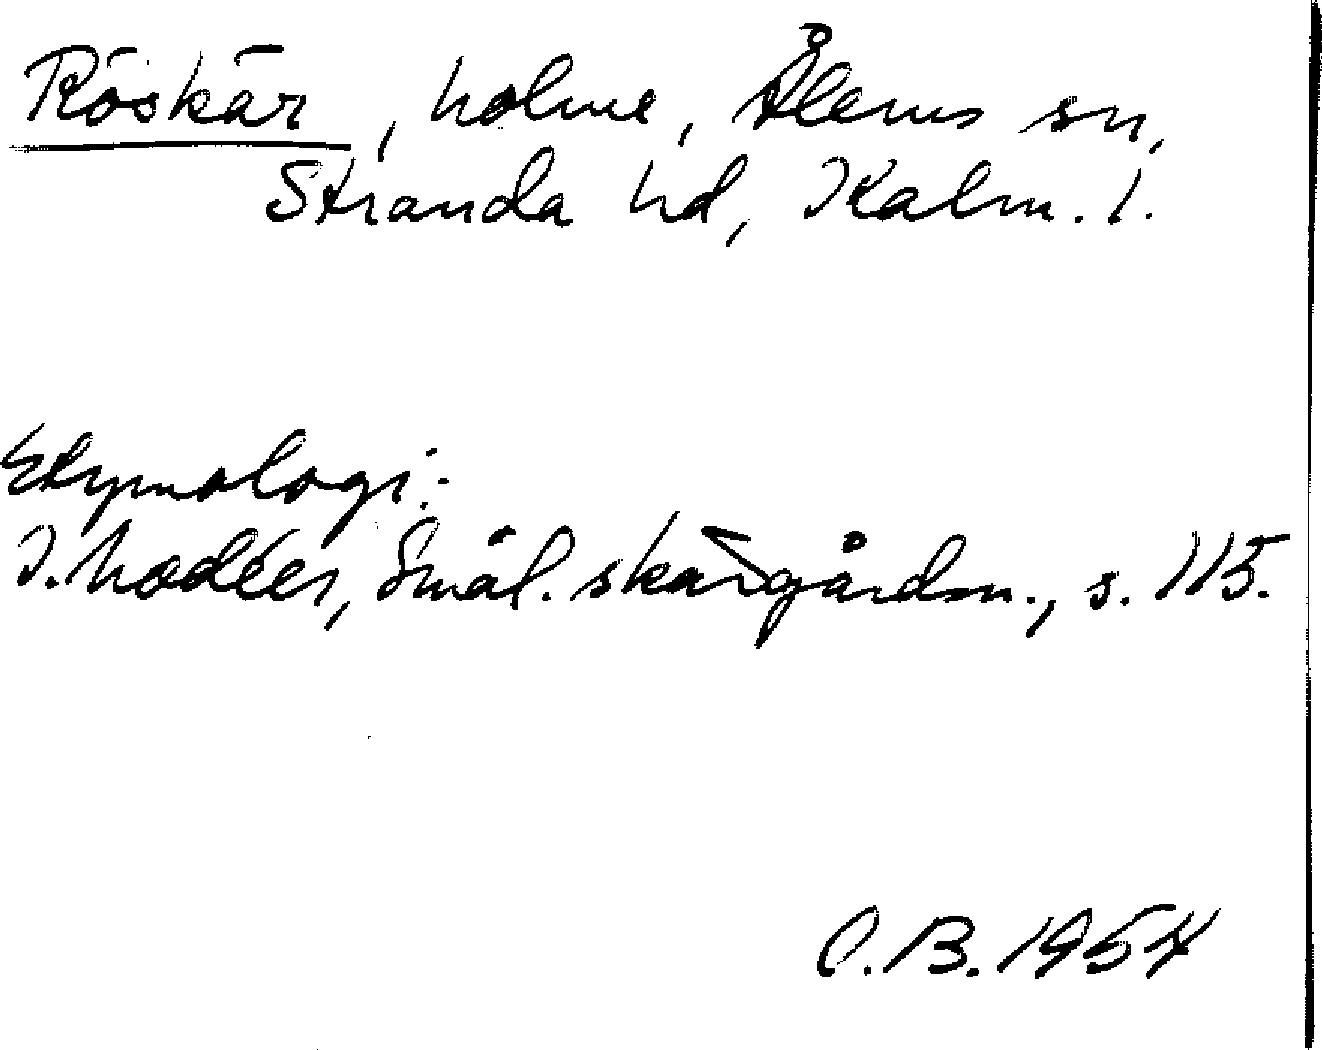 Röskär, holme, Ålems sn,
Stranda hd, Kalm. l.
Etymologi:
I. Modéer, Smål. skärgårdsn., s. 115.
C.B. 1954